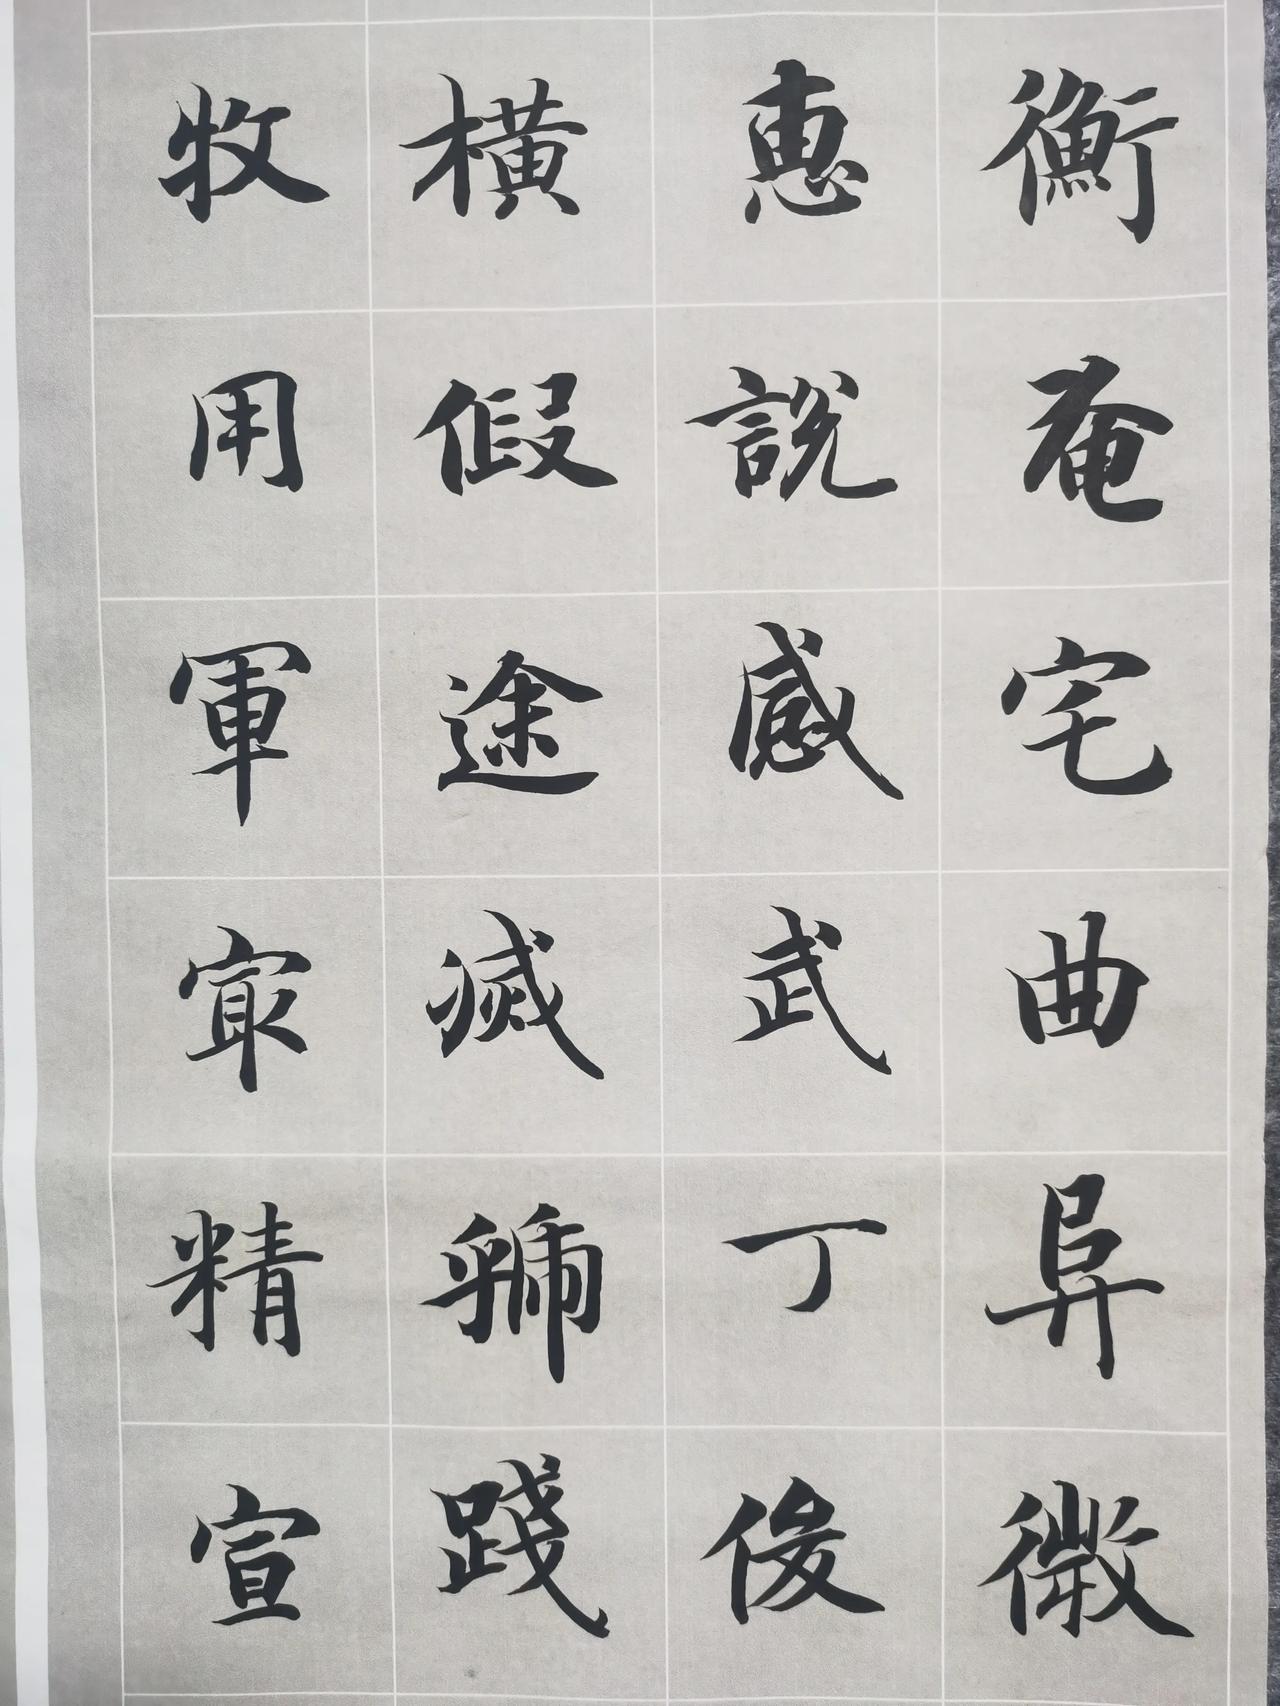 衡奄宅曲阜微
惠說感武丁俊
橫假途滅虢踐
牧用軍最精宣